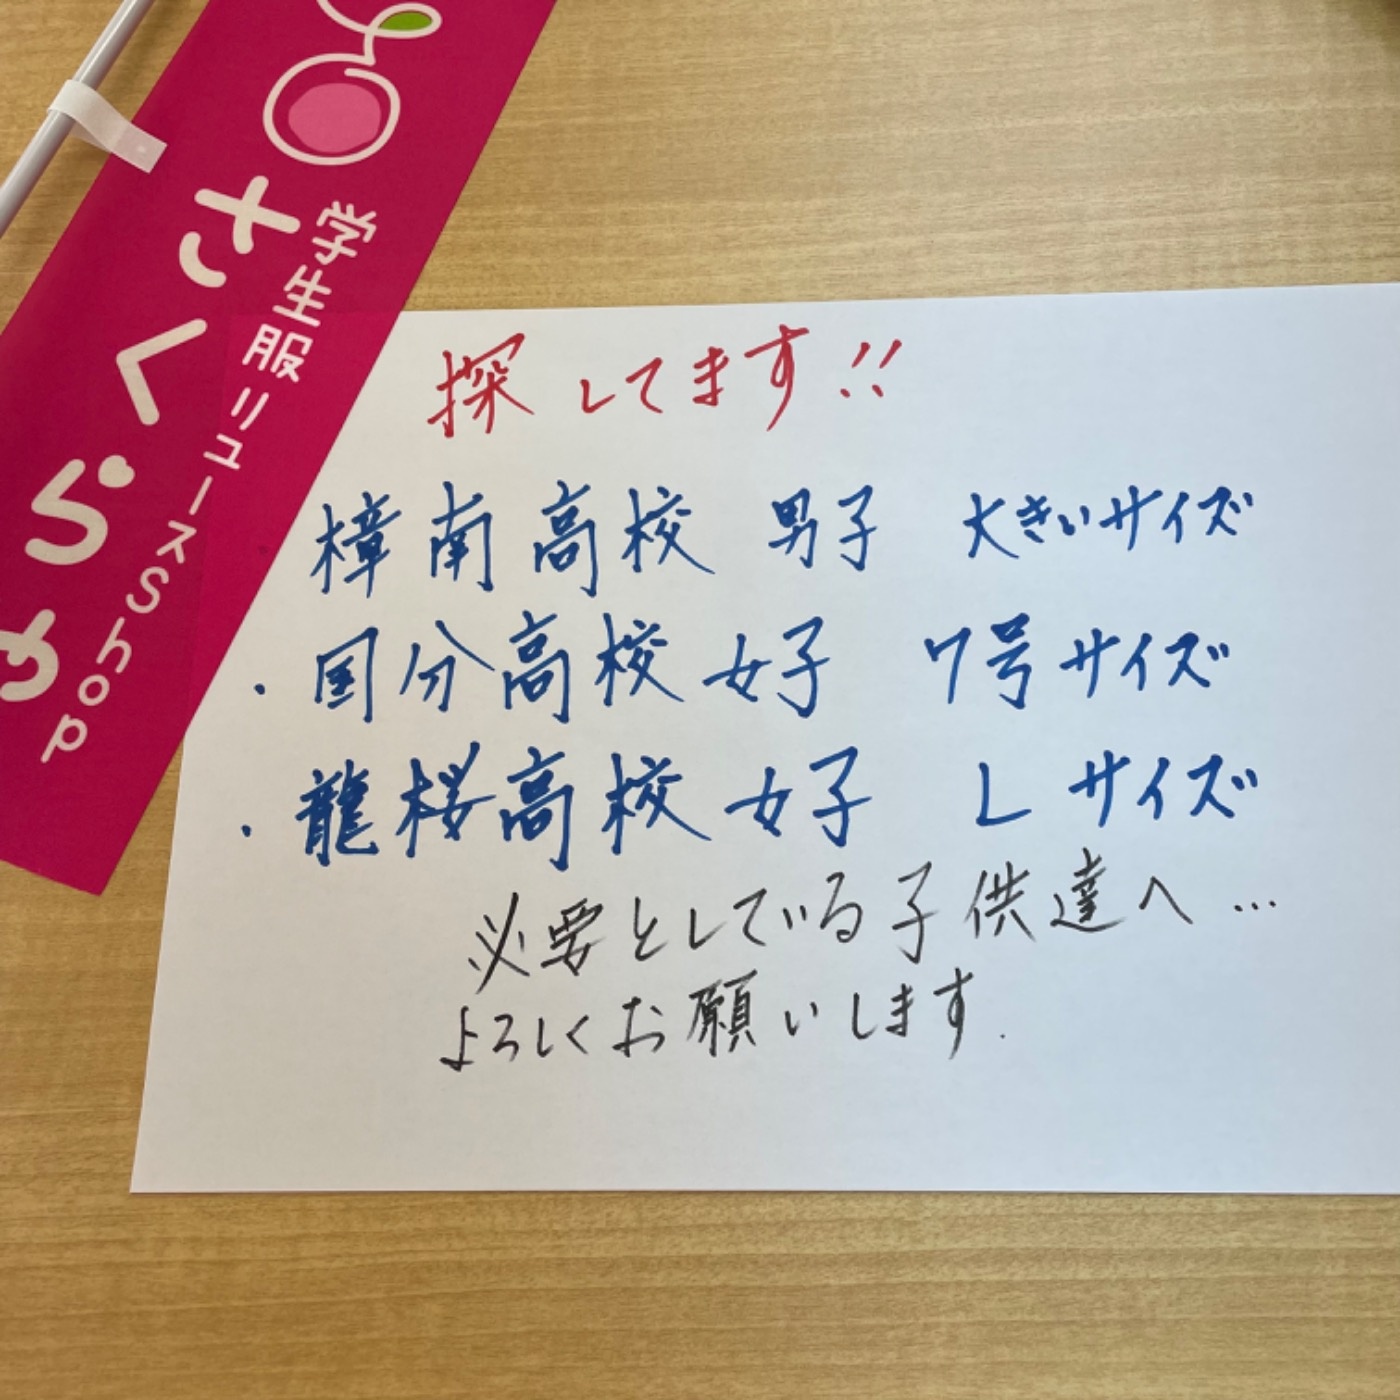 学生服リユースShop
さくらや
探してます!!
樟南高校 男子 大きいサイズ
・国分高校 女子 7号サイズ
・龍桜高校 女子 Lサイズ
必要としている子供達へ…
よろしくお願いします.